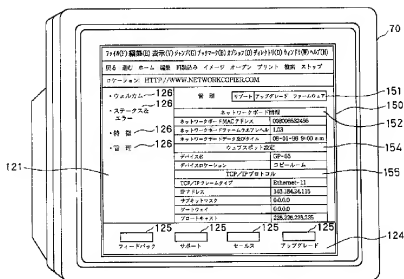 70
ファイル(F) 編集(E) 表示(V) ジャンプ(G) ブックマーク(B) オプション(O) ディレクトリ(D) ウィンドウ(W) ヘルプ(H)
戻る 進む ホーム 編集 再読込み イメージ オープン プリント 検索 ストップ
ロケーション HTTP://WWW.NETWORKCOPIER.COM
・ウェルカム 126
・ステータス& エラー 126
・特徴 126
・管理 126
121
管理 リブート アップグレード ファームウェア 151
150
ネットワークボード情報 152
ネットワークボードMACアドレス
ネットワークボードファームウエアレベル 1.03
ネットワークボードデータ及びタイム
ウェブスポット設定 154
デバイス名 GP-55
デバイスロケーション コピールーム
TCP/IPプロトコル 155
TCP/IPフレームタイプ Ethernet-11
IPアドレス
サブネットマスク 0.0.0.0
ゲートウェイ 0.0.0.0
ブロードキャスト
125 125 125 125
フィードバック サポート セールス アップグレード
124